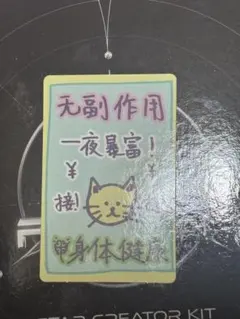 无副作用
一夜暴富！
¥ ¥
接！
甲身体健康
STAR CREATOR KIT